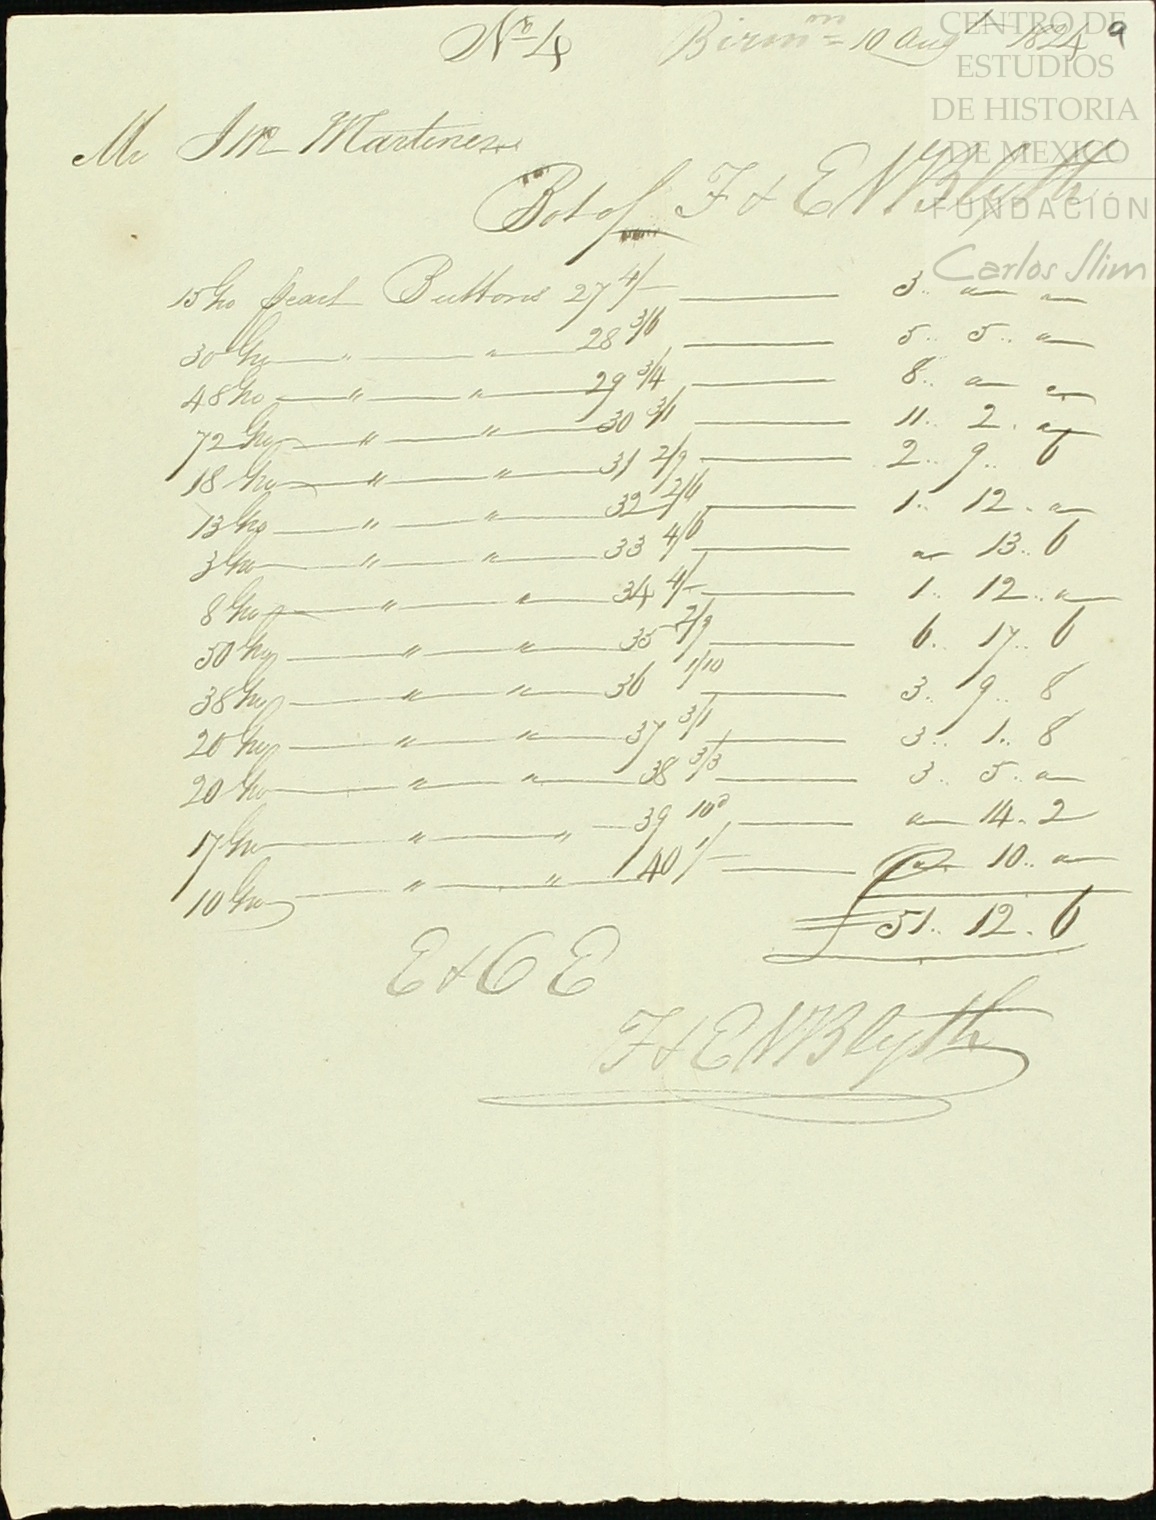 No 4 Birmm 10 Augt 1824 9
CENTRO DE
ESTUDIOS
DE HISTORIA
DE MEXICO
FUNDACIÓN
Carlos Slim
Mr Martinez
Bot of F & E N Blyth
15 Gro pearl Buttons 27 4/- 3.. " "
30 Gro " " 28 3/6 5.. 5.. "
48 Gro " " 29 3/4 8.. " "
72 Gro " " 30 3/1 11.. 2.. "
18 Gro " " 31 2/9 2.. 9.. 6
13 Gro " " 32 2/6 1.. 12.. "
3 Gro " " 33 4/6 " 13.. 6
8 Gro " " 34 4/- 1.. 12.. "
50 Gro " " 35 2/9 6.. 17.. 6
38 Gro " " 36 1/10 3.. 9.. 8
20 Gro " " 37 3/1 3.. 1.. 8
20 Gro " " 38 3/3 3.. 5.. "
17 Gro " " 39 10d " 14.. 2
10 Gro " " 40 1/- " 10.. "
£51.. 12.. 6
E & O E
F & E N Blyth